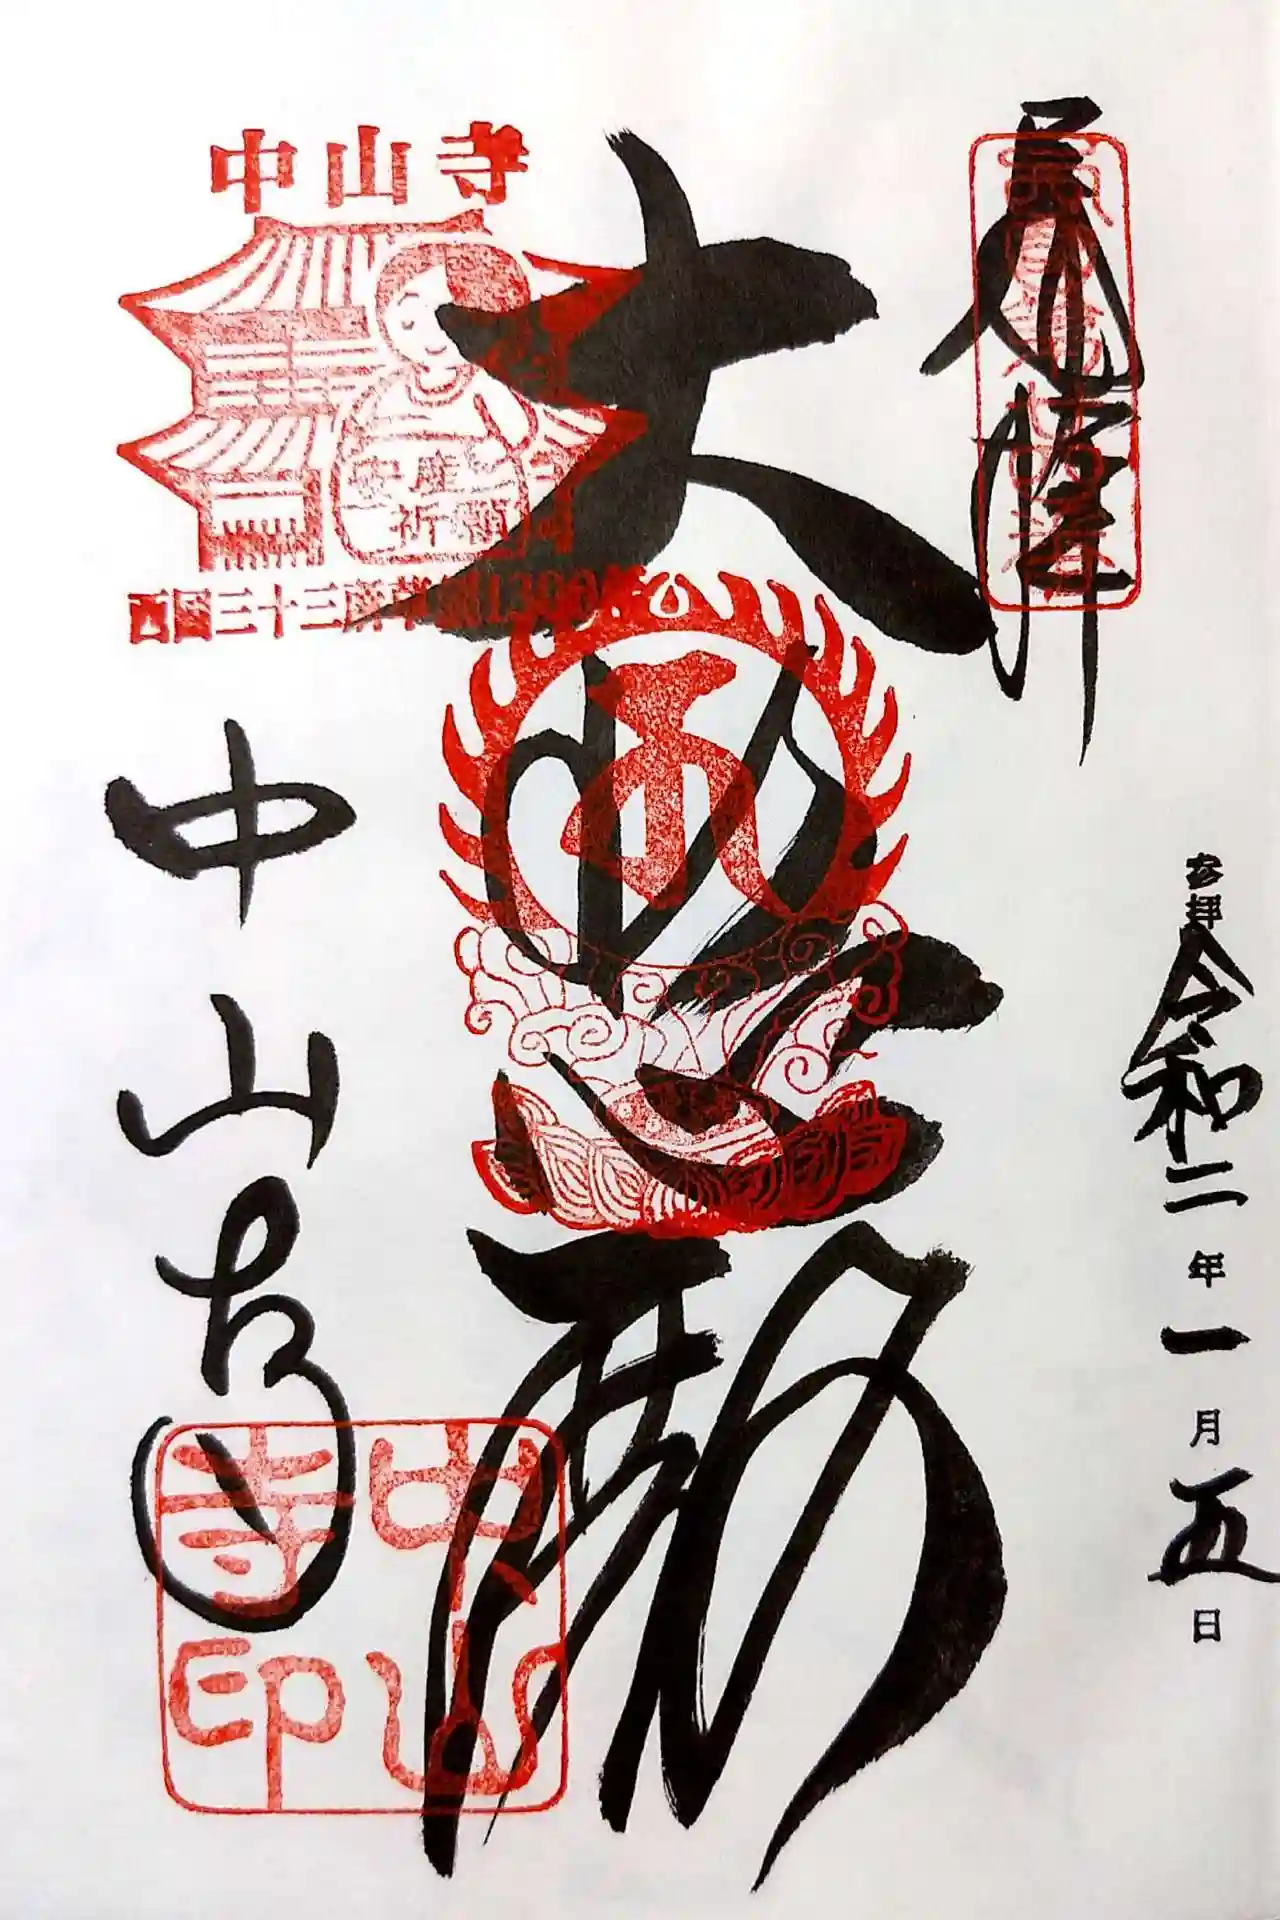 奉拝
令和二年一月五日
大悲殿
中山寺
中山寺
安産
祈願
西国三十三所草創1300年
中山寺印